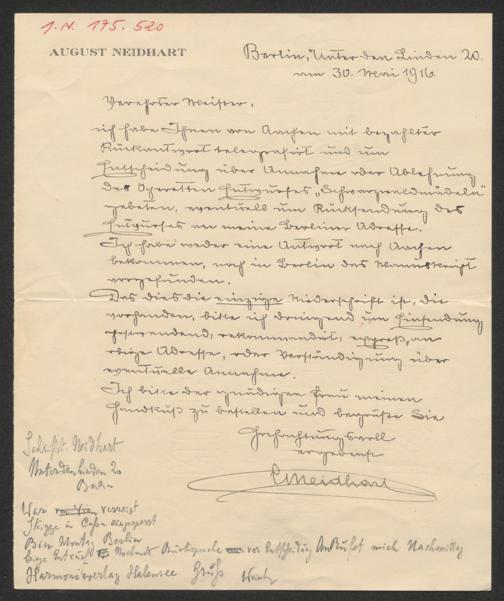 J.N. 175.520
AUGUST NEIDHART
Berlin, Unter den Linden 20.
am 30. Mai 1916
Verehrter Meister,
ich habe Ihnen von Aachen mit bezahlter
Rückantwort telegrafirt und um
Entscheidung über Annahme oder Ablehnung
des Operetten Entwurfes „Schwarzwaldmädeln“
gebeten, eventuell um Rücksendung des
Entwurfes an meine Berliner Adresse.
Ich habe weder eine Antwort nach Aachen
bekommen, noch in Berlin das Manuskript
vorgefunden.
Da dies die einzige Niederschrift ist, die
vorhanden, bitte ich dringend um Einsendung
postwendend, rekommandirt, express, an
obige Adresse, oder Verständigung über
eventuelle Annahme.
Ich bitte der gnädigen Frau meinen
Handkuß zu bestellen und begrüße Sie
Hochachtungsvoll
ergebenst
Neidhart
Schriftst. Neidhart
Unter den Linden 20
Berlin
War verreist
Skizze in Cassa eingesperrt
Bin Montag Berlin
Rücksprache vor Entscheidung Anrufet mich Nachmittag
Harmonieverlag Halensee Gruß